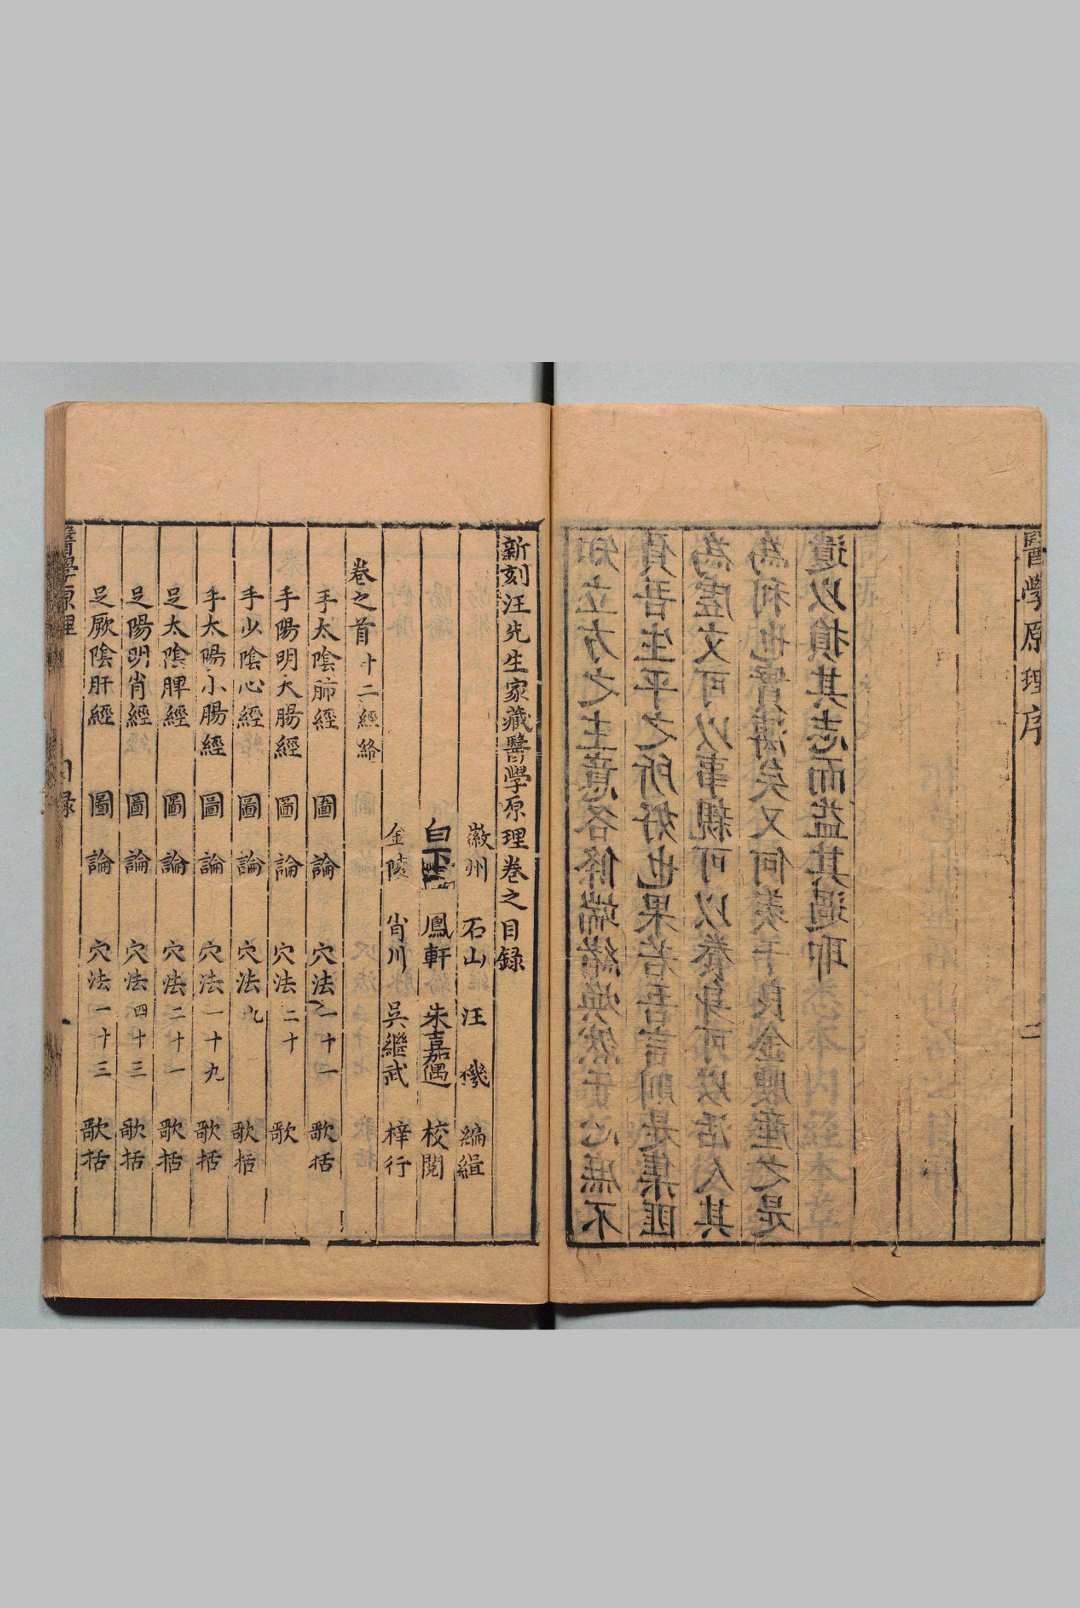 醫學原理序 二
知立方之主意各條端緒煥然于心庶不
負吾生平之所好也果若吾言則是集匪
為虛文可以事親可以養身可以活人其
為利也豈淺矣又何羨于良金腴產之是
遺以損其志而益其過耶
新刻汪先生家藏醫學原理卷之目錄
徽州 石山 汪機 編緝
白下 鳳軒 朱嘉遇 校閱
金陵 肖川 吳繼武 梓行
卷之首 十二經絡
手太陰肺經 圖 論 穴法一十 歌括
手陽明大腸經 圖 論 穴法二十 歌
手少陰心經 圖 論 穴法九 歌括
手太陽小腸經 圖 論 穴法一十九 歌括
足太陰脾經 圖 論 穴法二十一 歌括
足陽明肖經 圖 論 穴法四十三 歌括
足厥陰肝經 圖 論 穴法一十三 歌括
醫學原理 目錄